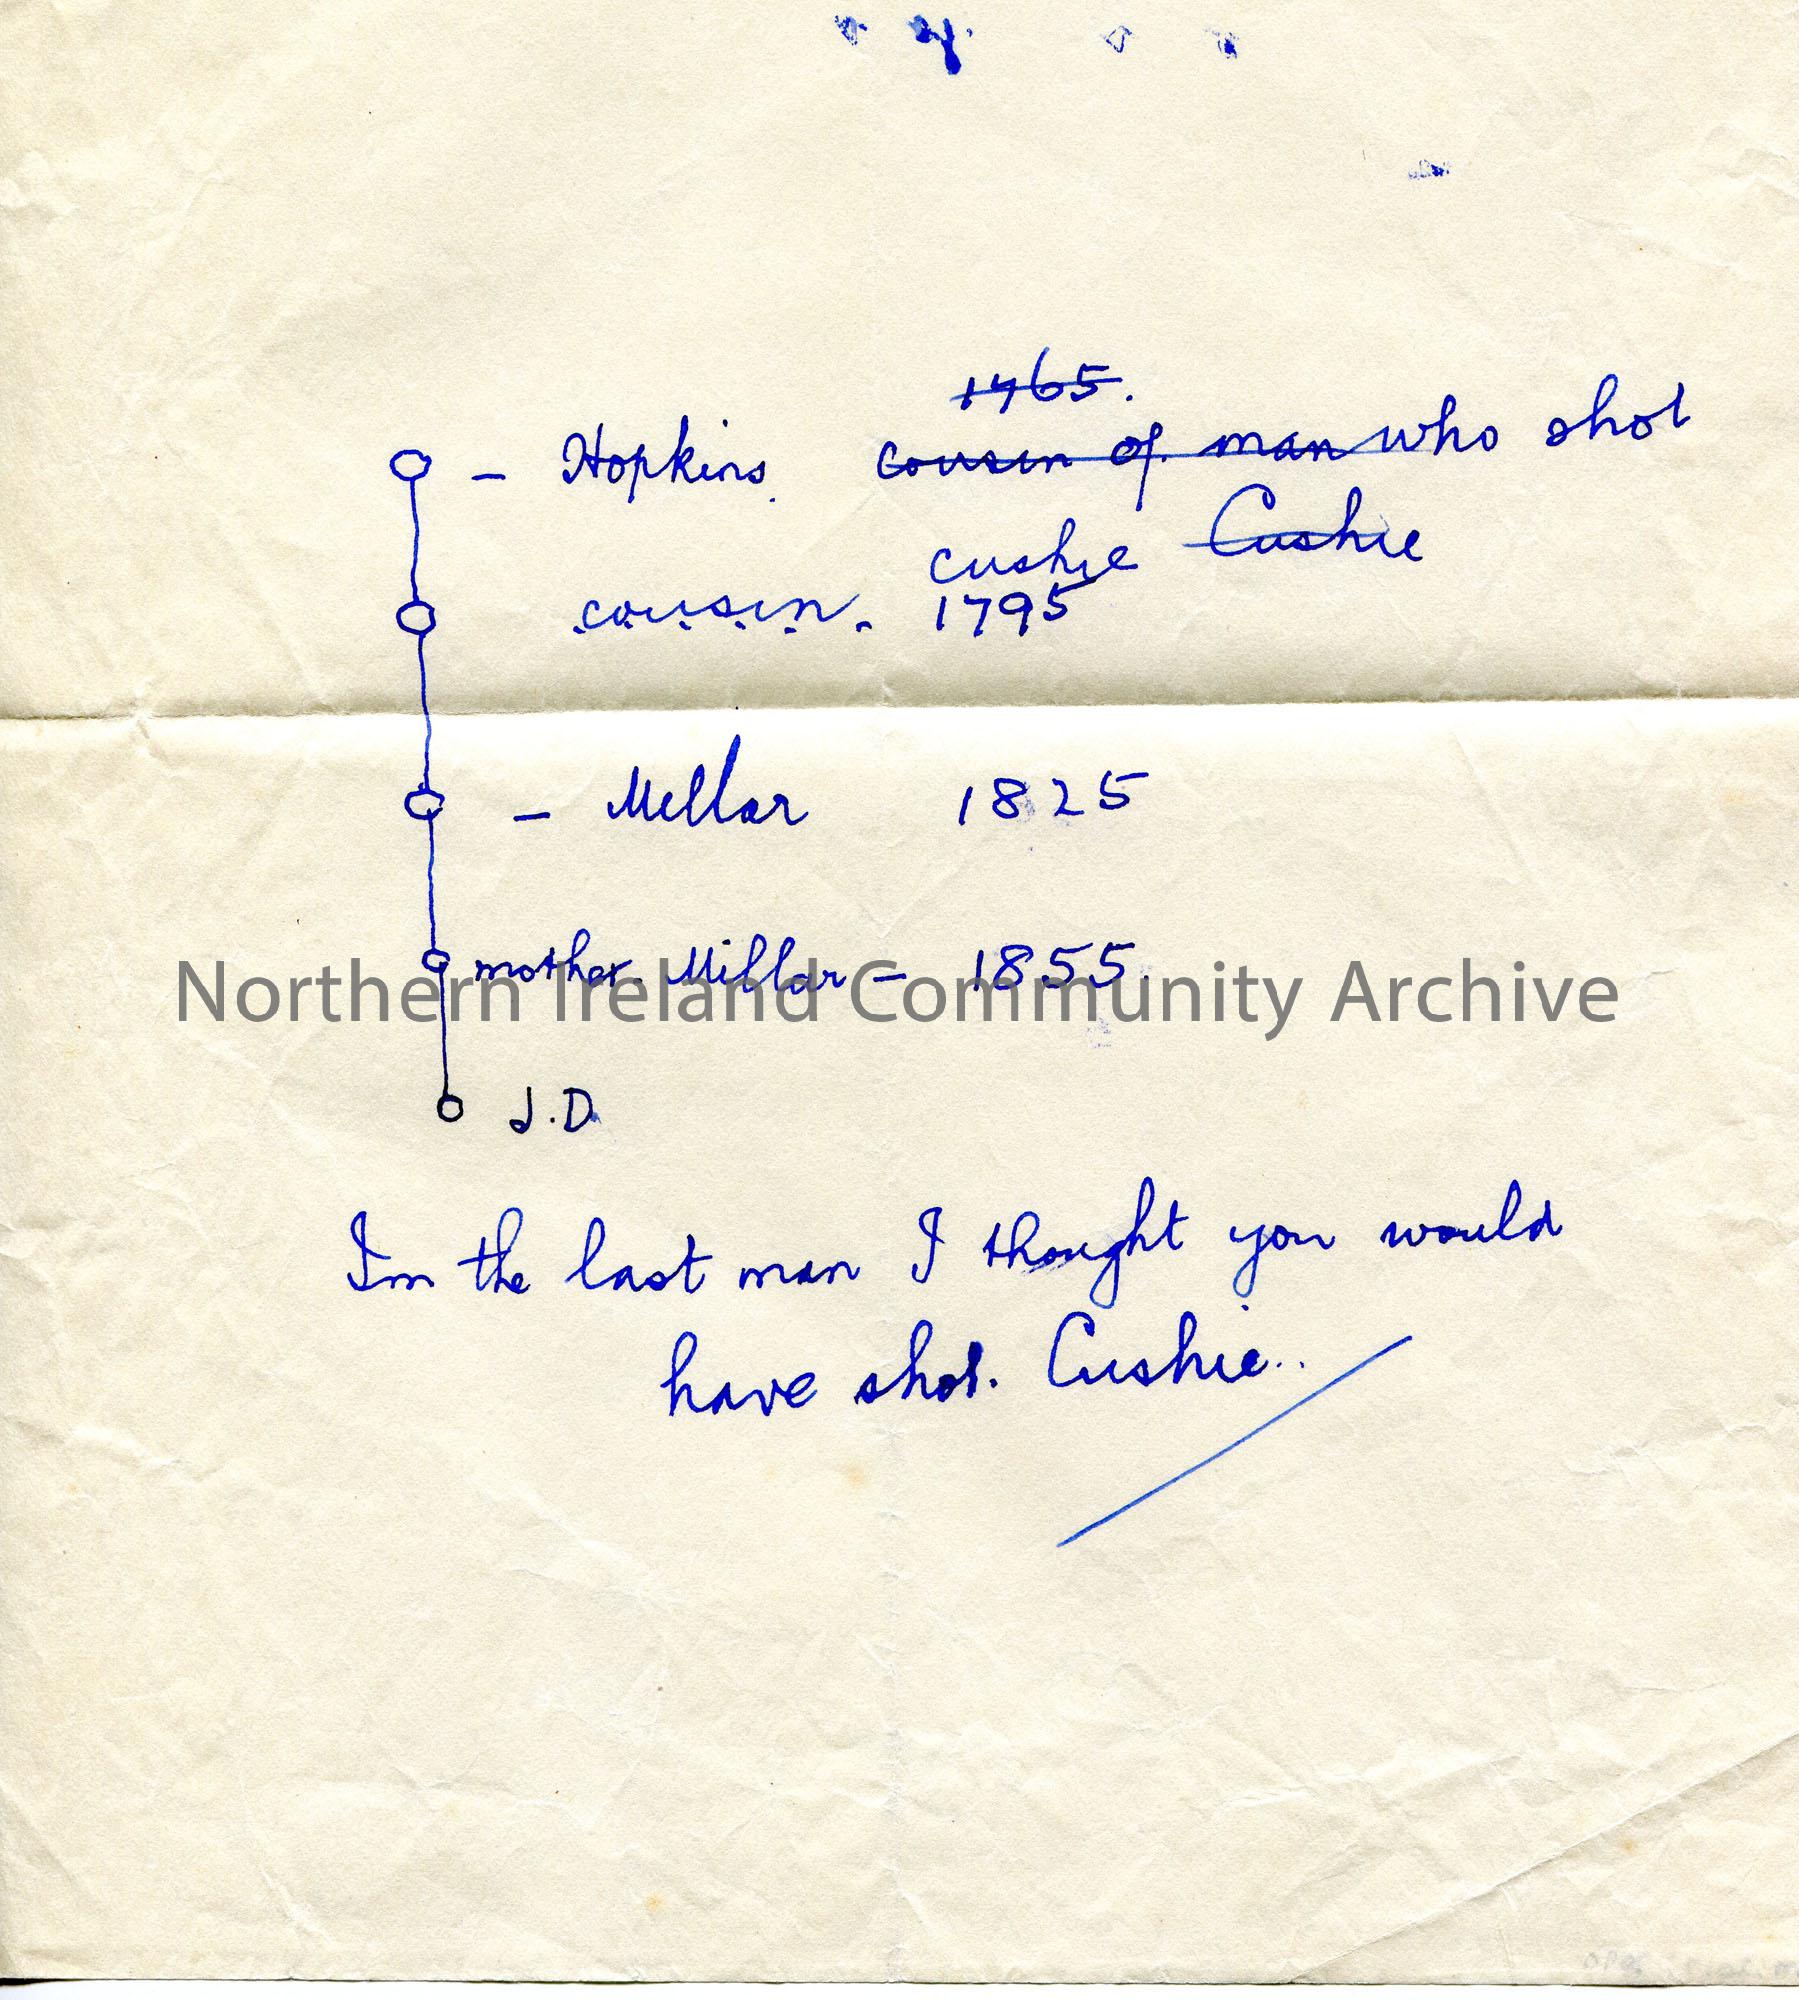 1765.
- Hopkins. cousin of man who shot
cushie Cushie
cousin. 1795
- Millar 1825
mother. Millar - 1855.
Northern Ireland Community Archive
J.D.
I'm the last man I thought you would
have shot. Cushie..